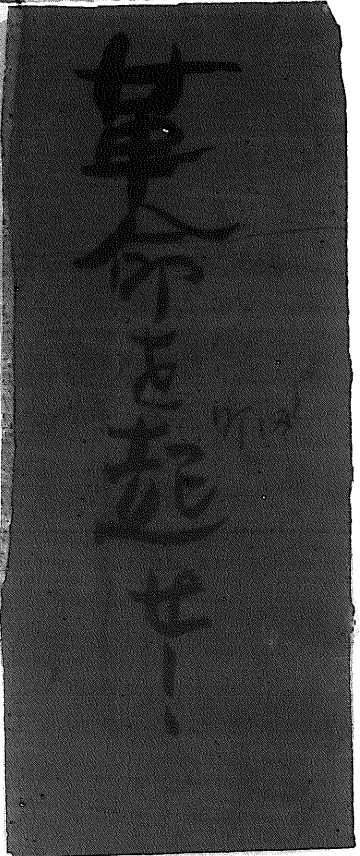 革命を起せ！